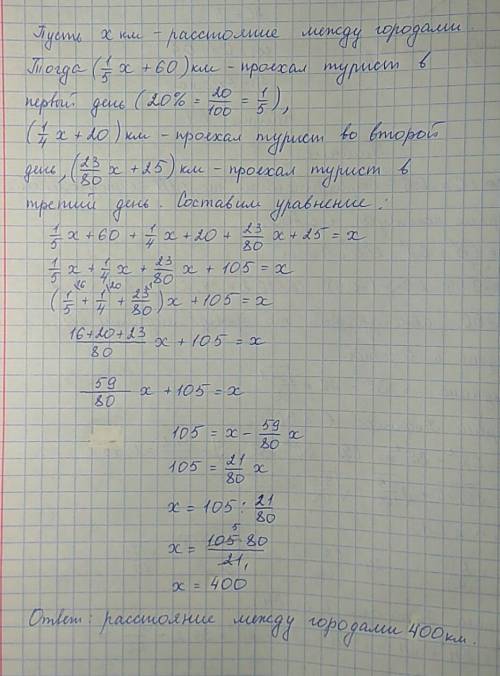 Пусть x км - расстояние между городами.
Тогда (1/5 x + 60) км - проехал турист в
первый день (20% = 20/100 = 1/5),
(1/4 x + 20) км - проехал турист во второй
день, (23/80 x + 25) км - проехал турист в
третий день. Составим уравнение:
1/5 x + 60 + 1/4 x + 20 + 23/80 x + 25 = x
1/5 x + 1/4 x + 23/80 x + 105 = x
(1/5 \16 + 1/4 \20 + 23/80 \1) x + 105 = x
16+20+23/80 x + 105 = x
59/80 x + 105 = x
105 = x - 59/80 x
105 = 21/80 x
x = 105 : 21/80
x = 105 5 · 80/21 1
x = 400
Ответ: расстояние между городами 400 км.